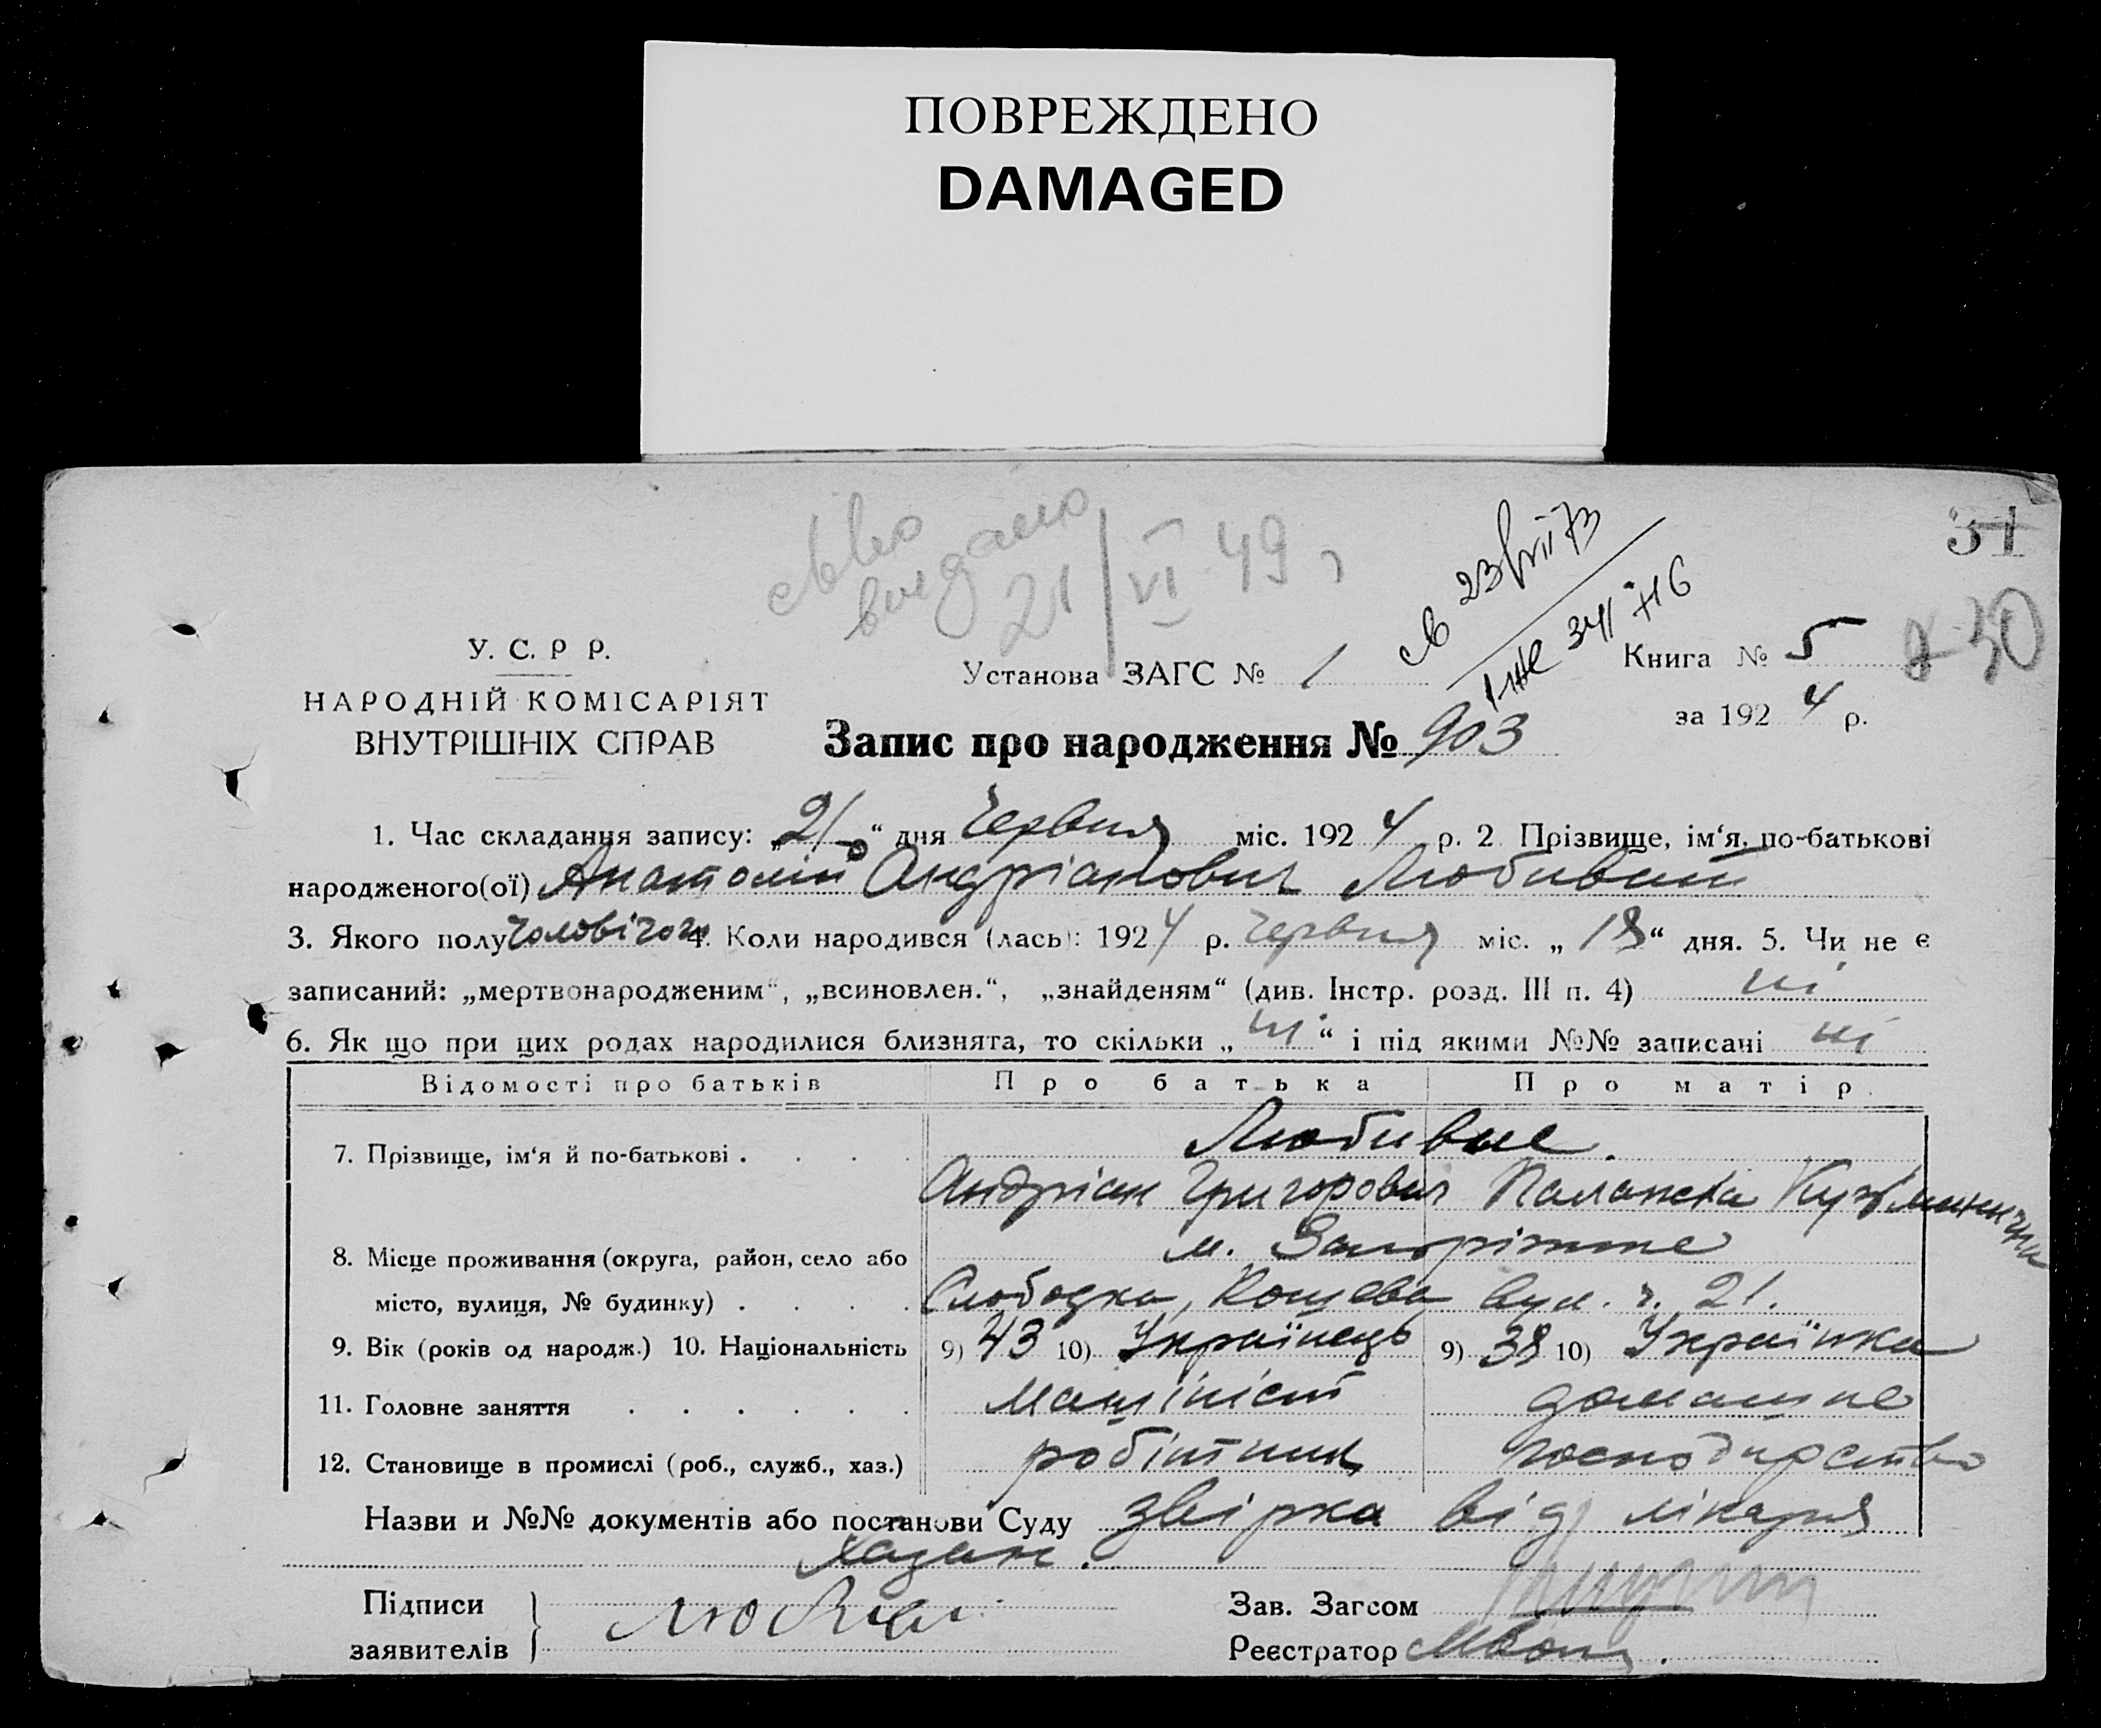 ПОВРЕЖДЕНО
DAMAGED
31
св-во
выдано
21/VI 49 г
св 23/VII 73
Книга № 5
У. С. Р Р.
Установа ЗАГС № 1
НАРОДНІЙ КОМІСАРІЯТ
за 192 4 р.
ВНУТРІШНІХ СПРАВ
Запис про народження № 903
1. Час складання запису: „21“ дня Червня міс. 192 4 р. 2 Прізвище, ім‘я, по-батькові
народженого(ої) Анатолій Андріанович Любивий
3. Якого полу Чоловічого 4. Коли народився (лась): 192 4 р. Червня міс. „18“ дня. 5. Чи не є
записаний: „мертвонародженим“, „всиновлен.“, „знайденям“ (див. Інстр. розд. III п. 4) ні
6. Як що при цих родах народилися близнята, то скільки „ні“ і під якими №№ записані ні
Відомості про батьків Про батька Про матір
7. Прізвище, ім‘я й по-батькові . . . . Любивые.
Андріан Григорович Кузьминична
8. Місце проживання (округа, район, село або м. Запоріжже
місто, вулиця, № будинку) . . . . Слободка, Кощева вул. ч. 21.
9. Вік (років од народж.) 10. Національність 9) 43 10) Українець 9) 38 10) Українка
11. Головне заняття . . . . . . Машініст домашне
12. Становище в промислі (роб., служб., хаз.) робітник господарство
Назви и №№ документів або постанови Суду Звірка від лікаря
Хазан.
Підписи
заявителів
Зав. Загсом
Реєстратор